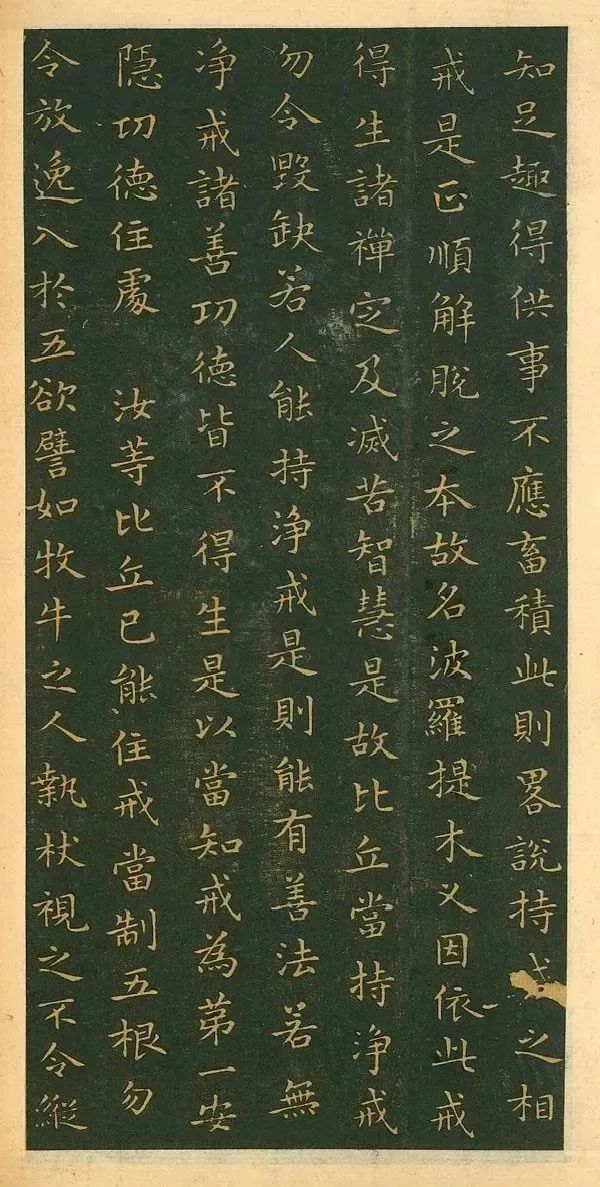 知足趣得供事不應畜積此則畧說持戒之相
戒是正順解脫之本故名波羅提木义因依此戒
得生諸禪定及滅苦智慧是故比丘當持淨戒
勿令毀缺若人能持淨戒是則能有善法若無
淨戒諸善功德皆不得生是以當知戒為第一安
隱功德住處 汝等比丘已能住戒當制五根勿
令放逸入於五欲譬如牧牛之人執杖視之不令縱